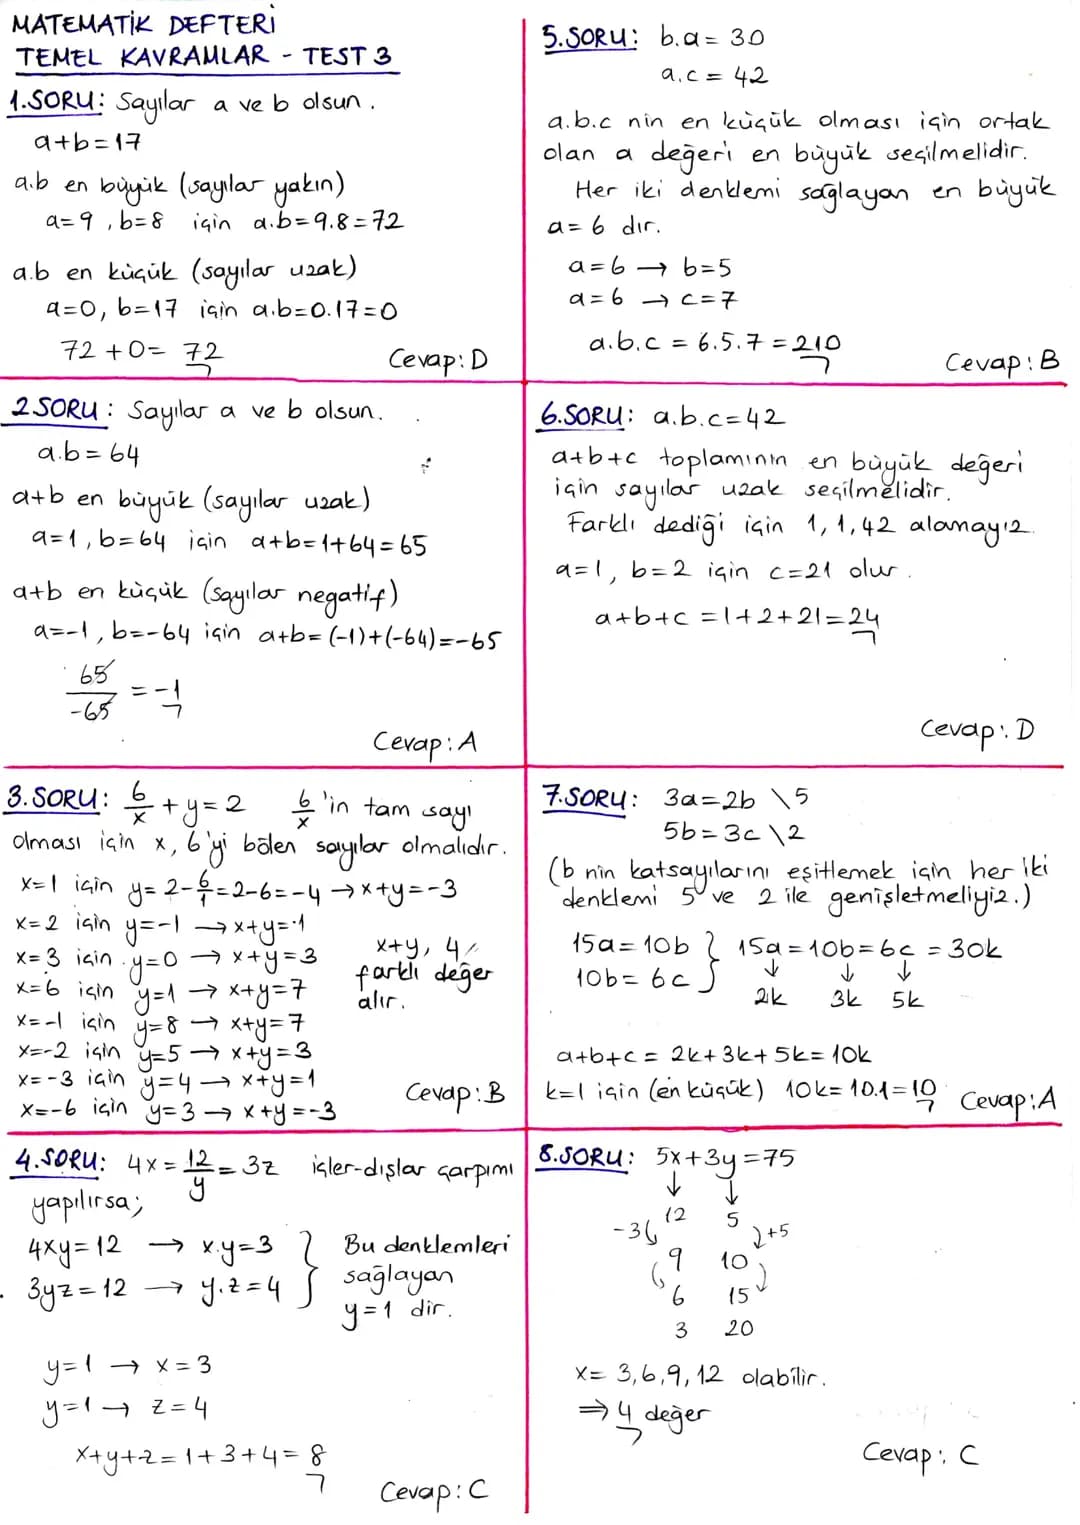 MATEMATİK DEFTERİ
TEMEL KAVRAMLAR - TEST 3
1.SORU: Sayılar a ve b olsun.
a+b=17
a.b en büyük (sayılar yakın)
a=9, b=8 için a.b=9.8=72
a.b en küçük (sayılar uzak)
a=0, b=17 için a.b=0.17=0
72+0=72
Cevap: D
2 SORU: Sayılar a ve b olsun.
a.b=64
a+b en büyük (sayılar uzak)
a=1, b=64 için a+b=1+64=65
a+b en küçük (sayılar negatif)
a=-1, b=-64 için a+b=(-1)+(-64)=-65
65/-65 = -1
Cevap: A
3.SORU: 6/x + y = 2 6/x 'in tam sayı
olması için x, 6'yı bölen sayılar olmalıdır.
x=1 için y=2-6/1=2-6=-4 → x+y=-3
x=2 için y=-1 → x+y=1
x=3 için y=0 → x+y=3
x=6 için y=1 → x+y=7
x=-1 için y=8 → x+y=7
x=-2 için y=5 → x+y=3
x=-3 için y=4 → x+y=1
x=-6 için y=3 → x+y=-3
x+y, 4
farklı değer
alır.
Cevap: B
4.SORU: 4x = 12/y = 3z içler-dışlar çarpımı
yapılırsa;
4xy=12 → x.y=3
3yz=12 → y.z=4
Bu denklemleri
sağlayan
y=1 dir.
y=1 → x=3
y=1 → z=4
x+y+z=1+3+4=8
Cevap: C
5.SORU: b.a=30
a.c=42
a.b.c nin en küçük olması için ortak
olan a değeri en büyük seçilmelidir.
Her iki denklemi sağlayan en büyük
a=6 dır.
a=6 → b=5
a=6 → c=7
a.b.c = 6.5.7 = 210
Cevap: B
6.SORU: a.b.c=42
a+b+c toplamının en büyük değeri
için sayılar uzak seçilmelidir.
Farklı dediği için 1, 1, 42 alamayız.
a=1, b=2 için c=21 olur.
a+b+c =1+2+21=24
Cevap: D
7.SORU: 3a=2b \5
5b=3c \2
(b nin katsayılarını eşitlemek için her iki
denklemi 5 ve 2 ile genişletmeliyiz.)
15a=10b } 15a=10b=6c =30k
10b=6c ↓ ↓ ↓
2k 3k 5k
a+b+c= 2k+3k+5k=10k
k=1 için (en küçük) 10k=10.1=10
Cevap: A
8.SORU: 5x+3y=75
↓ ↓
12 5
-3 +5
9 10
6 15
3 20
x= 3,6,9,12 olabilir.
⇒ 4 değer
Cevap: C